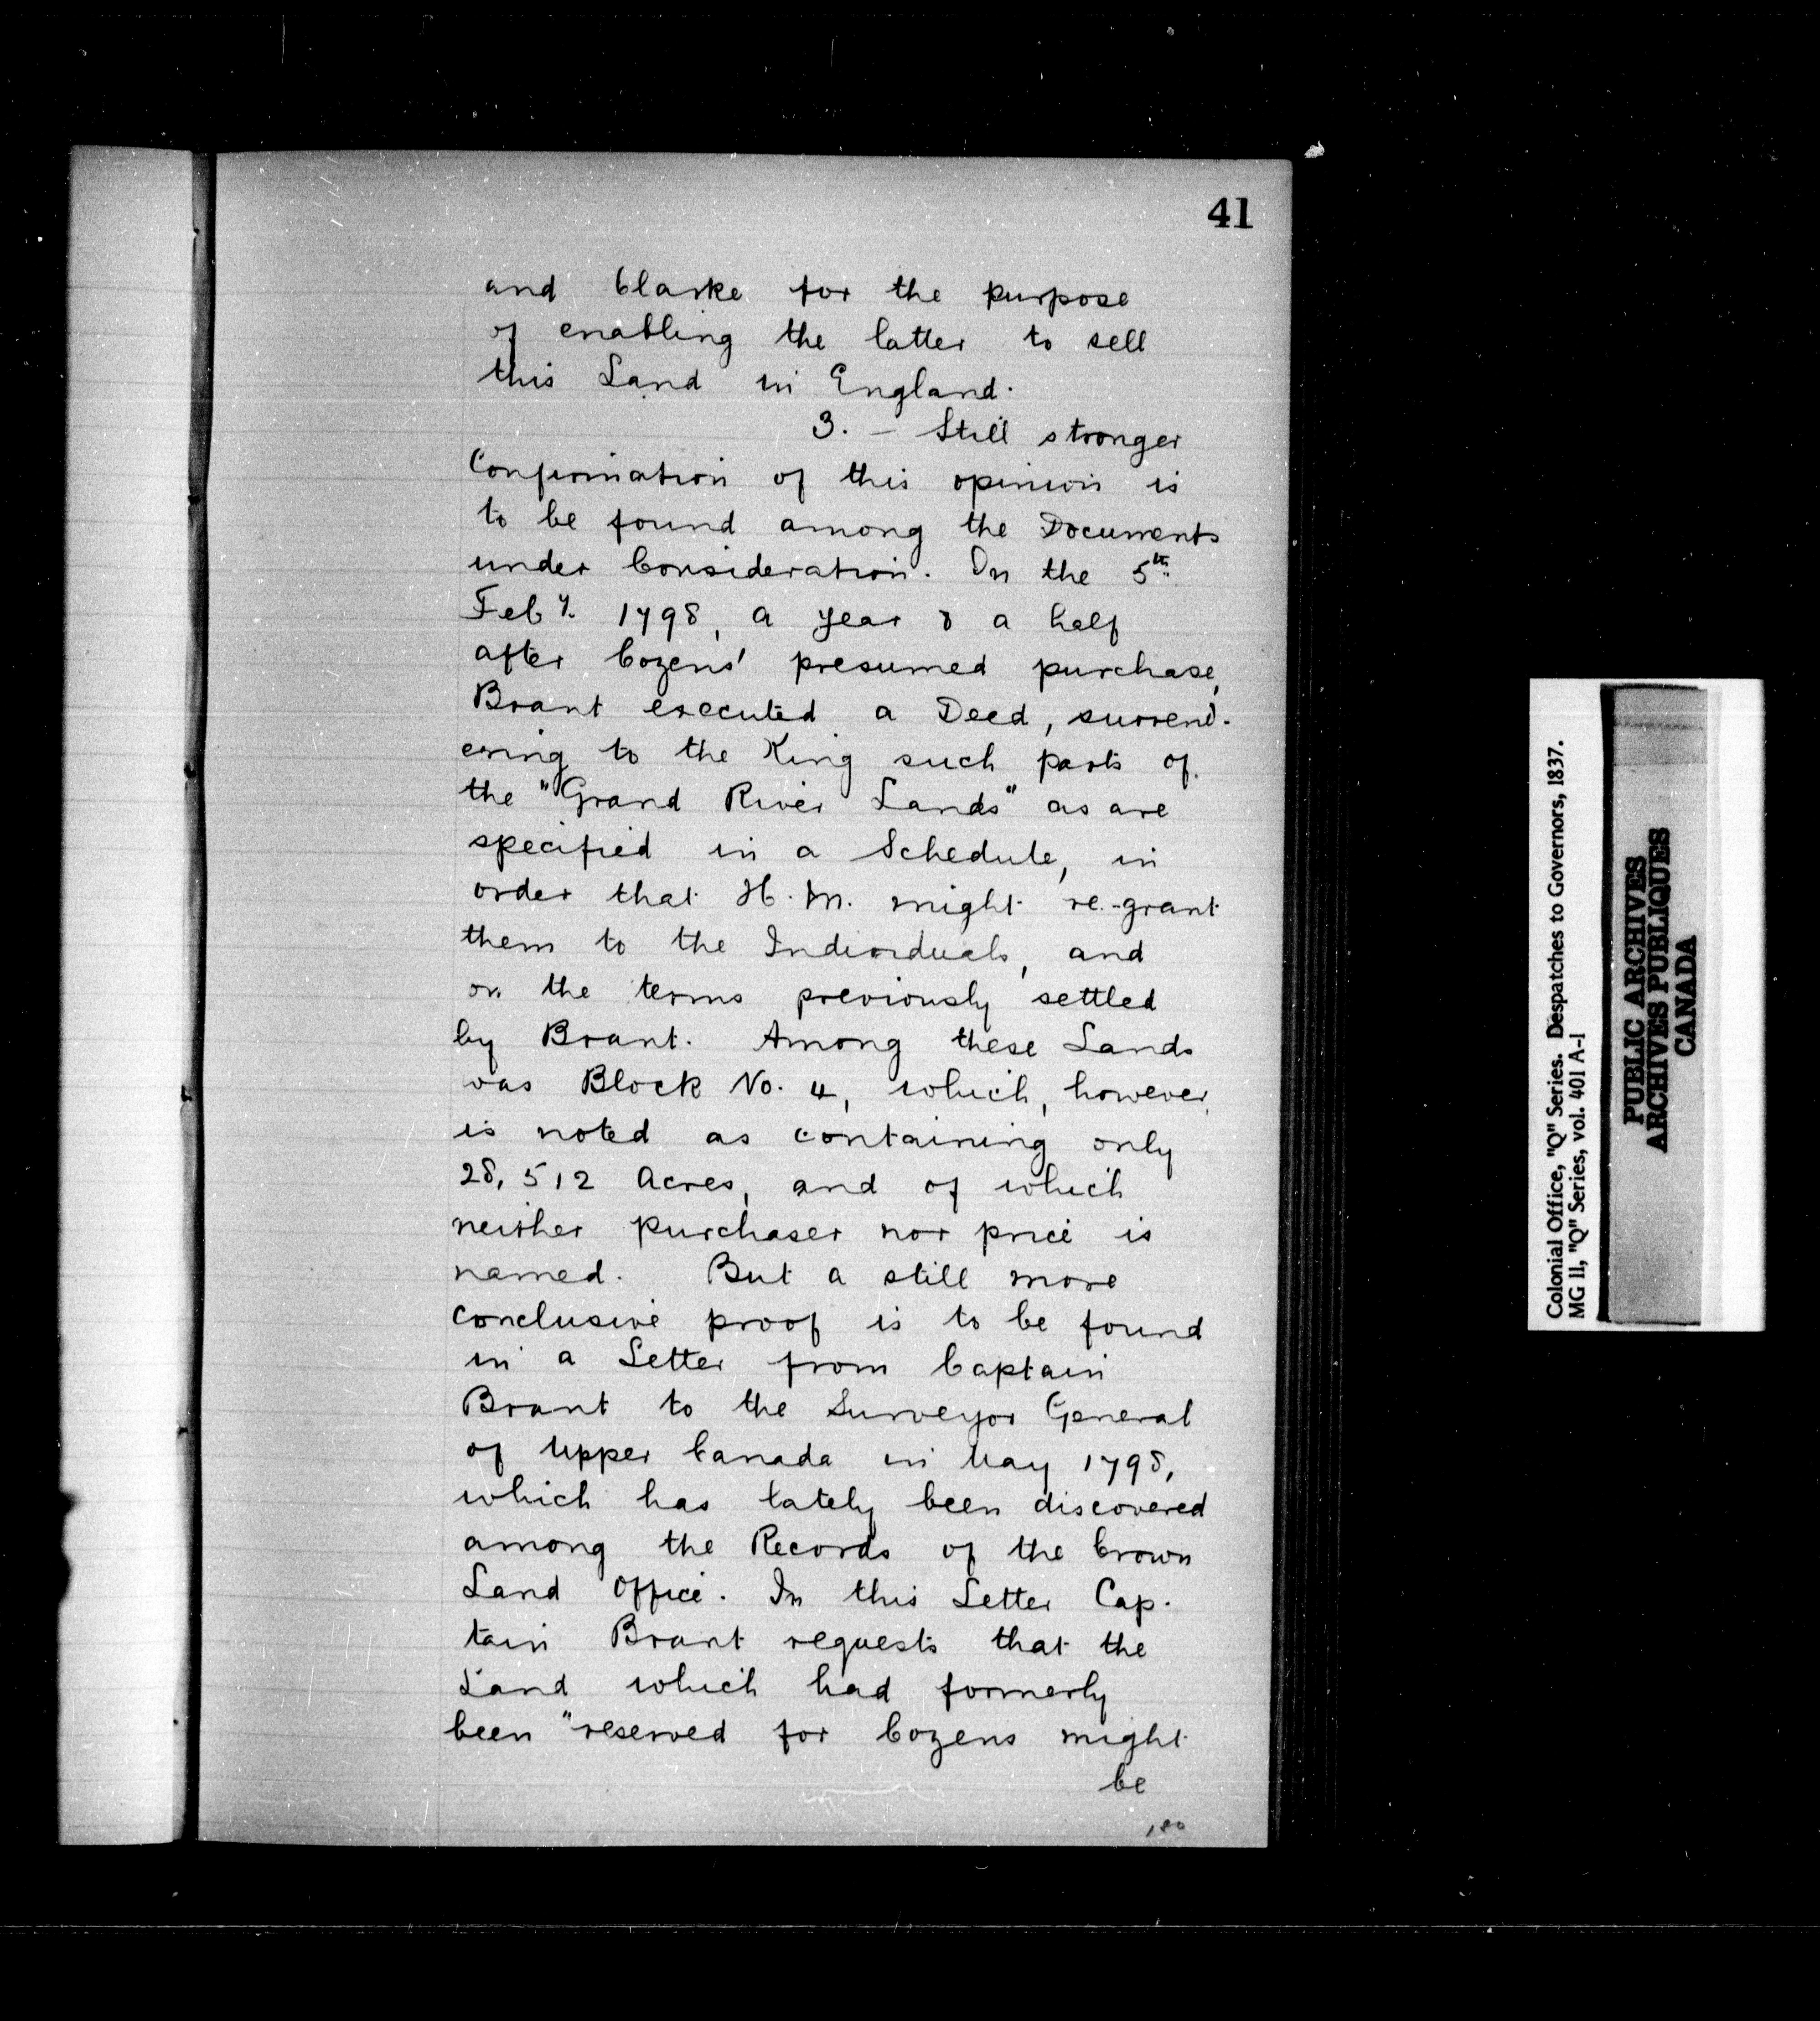 41
and Clarke for the purpose
of enabling the latter to sell
this Land in England.
3. – Still stronger
Confirmation of this opinion is
to be found among the Documents
under Consideration. On the 5th
Feby. 1798, a year & a half
after Cozens' presumed purchase,
Brant executed a Deed, surrend-
ering to the King such parts of
the "Grand River Lands" as are
specified in a Schedule, in
order that H.M. might re-grant
them to the Individuals, and
on the terms previously settled
by Brant. Among these Lands
was Block No. 4, which, however,
is noted as containing only
28,512 Acres, and of which
neither purchaser nor price is
named. But a still more
conclusive proof is to be found
in a Letter from Captain
Brant to the Surveyor General
of Upper Canada in May 1798,
which has lately been discovered
among the Records of the Crown
Land Office. In this Letter Cap-
tain Brant requests that the
Land which had formerly
been "reserved for Cozens might
be
Colonial Office, "Q" Series. Despatches to Governors, 1837.
MG 11, "Q" Series, vol. 401 A-1
PUBLIC ARCHIVES
ARCHIVES PUBLIQUES
CANADA